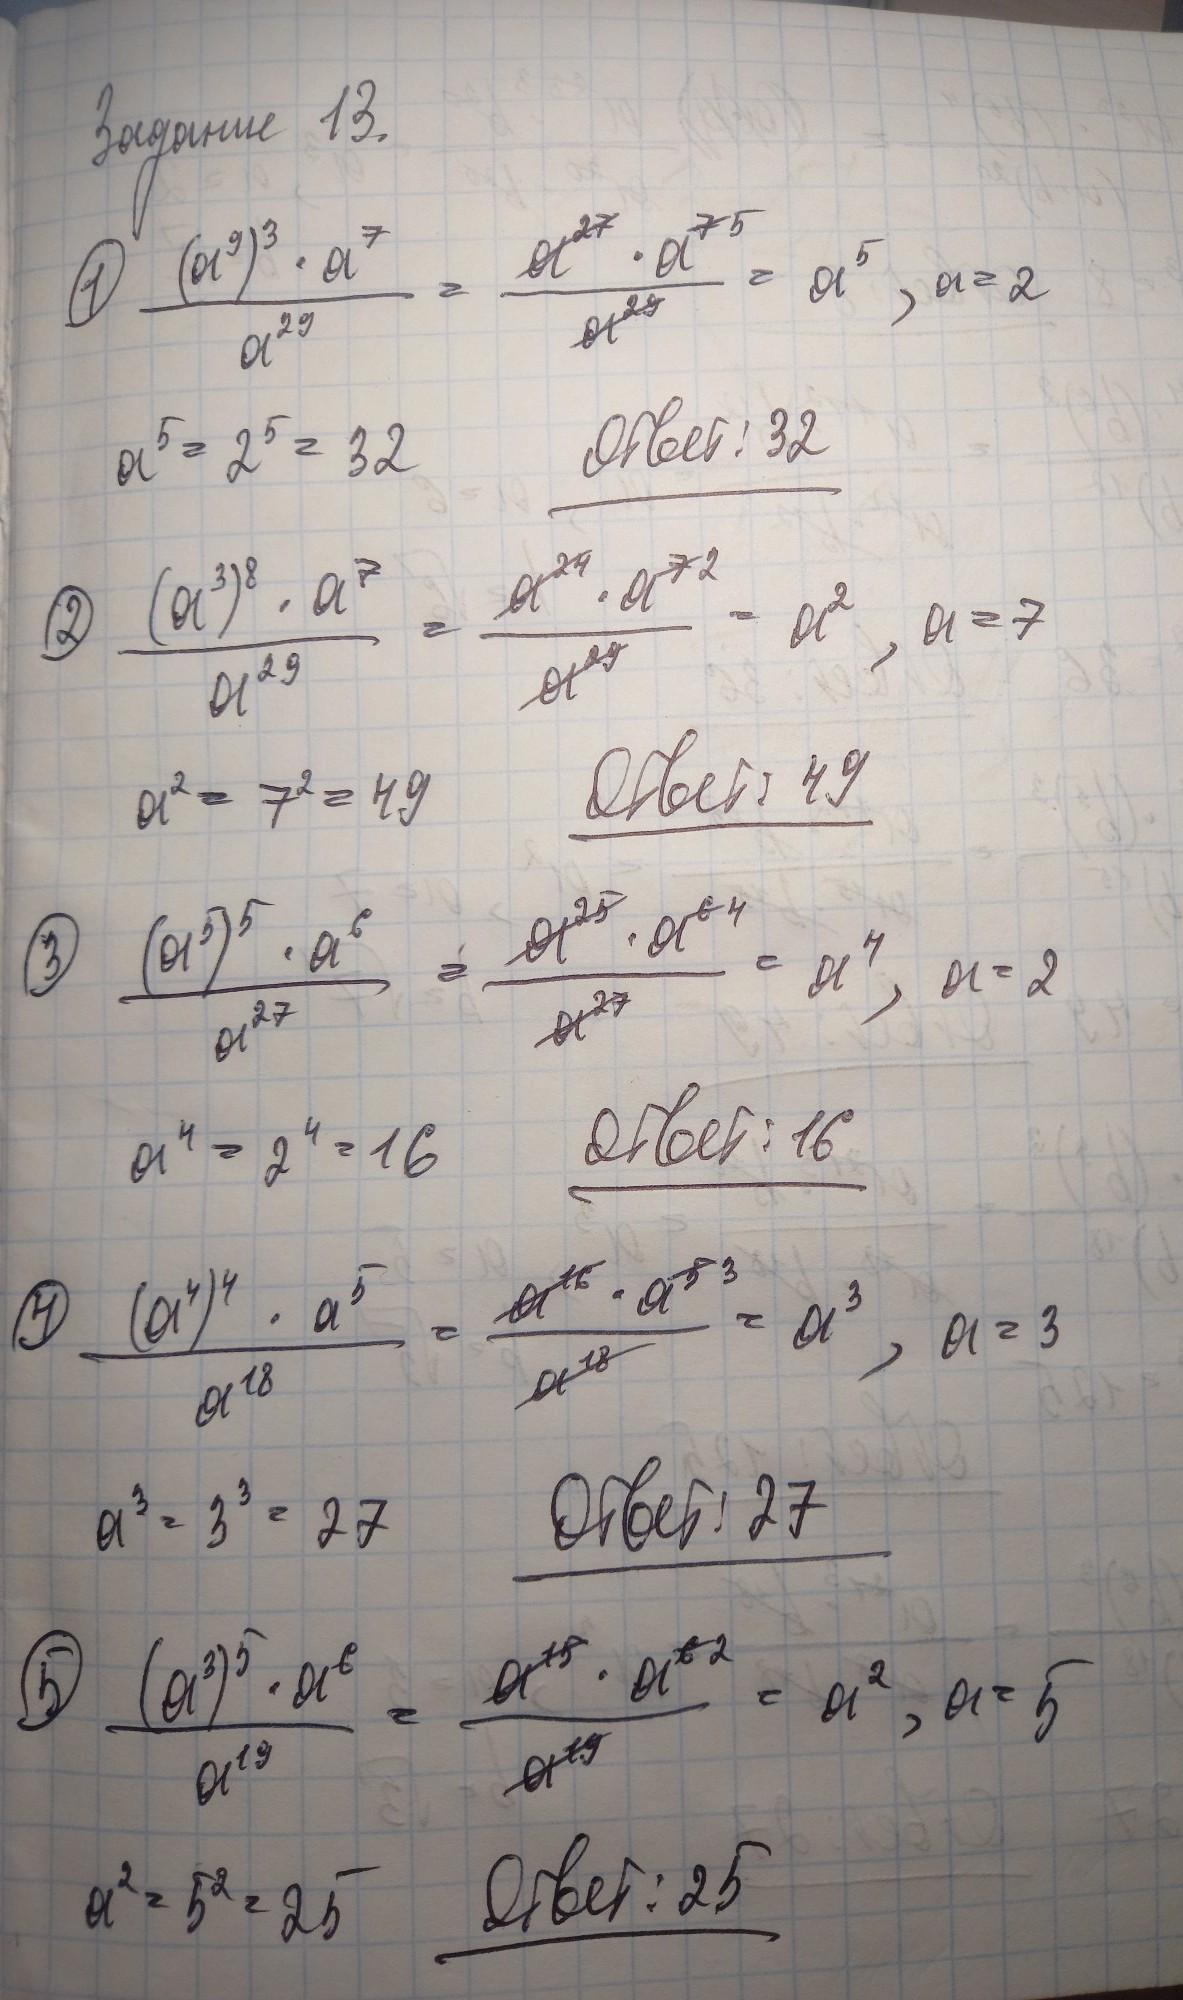 Задание 13.
① (a⁹)³ · a⁷ / a²⁹ = a²⁷ · a⁷ ⁵ / a²⁹ = a⁵, a = 2
a⁵ = 2⁵ = 32 Ответ: 32
② (a³)⁸ · a⁷ / a²⁹ = a²⁴ · a⁷ ² / a²⁹ = a², a = 7
a² = 7² = 49 Ответ: 49
③ (a⁵)⁵ · a⁶ / a²⁷ = a²⁵ · a⁶ ⁴ / a²⁷ = a⁴, a = 2
a⁴ = 2⁴ = 16 Ответ: 16
④ (a⁴)⁴ · a⁵ / a¹⁸ = a¹⁶ · a⁵ ³ / a¹⁸ = a³, a = 3
a³ = 3³ = 27 Ответ: 27
⑤ (a³)⁵ · a⁶ / a¹⁹ = a¹⁵ · a⁶ ² / a¹⁹ = a², a = 5
a² = 5² = 25 Ответ: 25